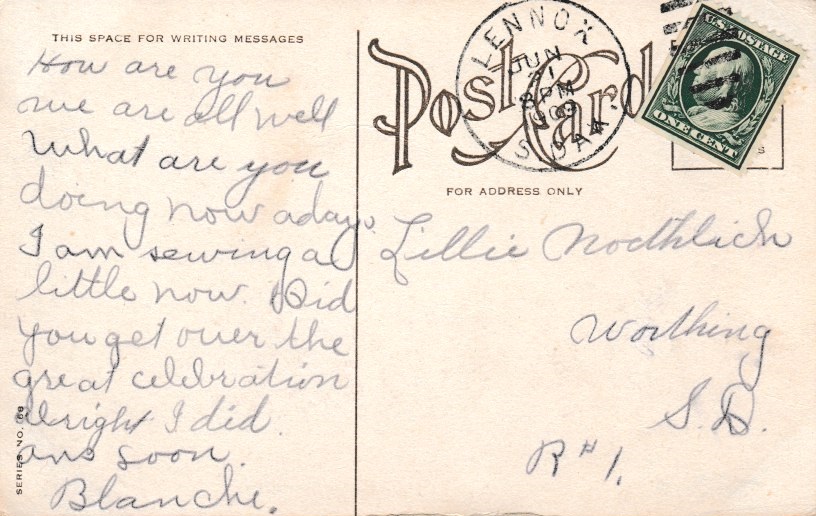 THIS SPACE FOR WRITING MESSAGES
How are you
we are all well
What are you
doing now adays.
I am sewing a
little now. Did
you get over the
great celebration
alright I did.
ans soon.
Blanche.
SERIES NO. 168
Post Card
LENNOX
JUN
21
8 PM
1909
S. DAK.
U.S. POSTAGE
ONE CENT
FOR ADDRESS ONLY
Lillie
Worthing
S.D.
R#1.